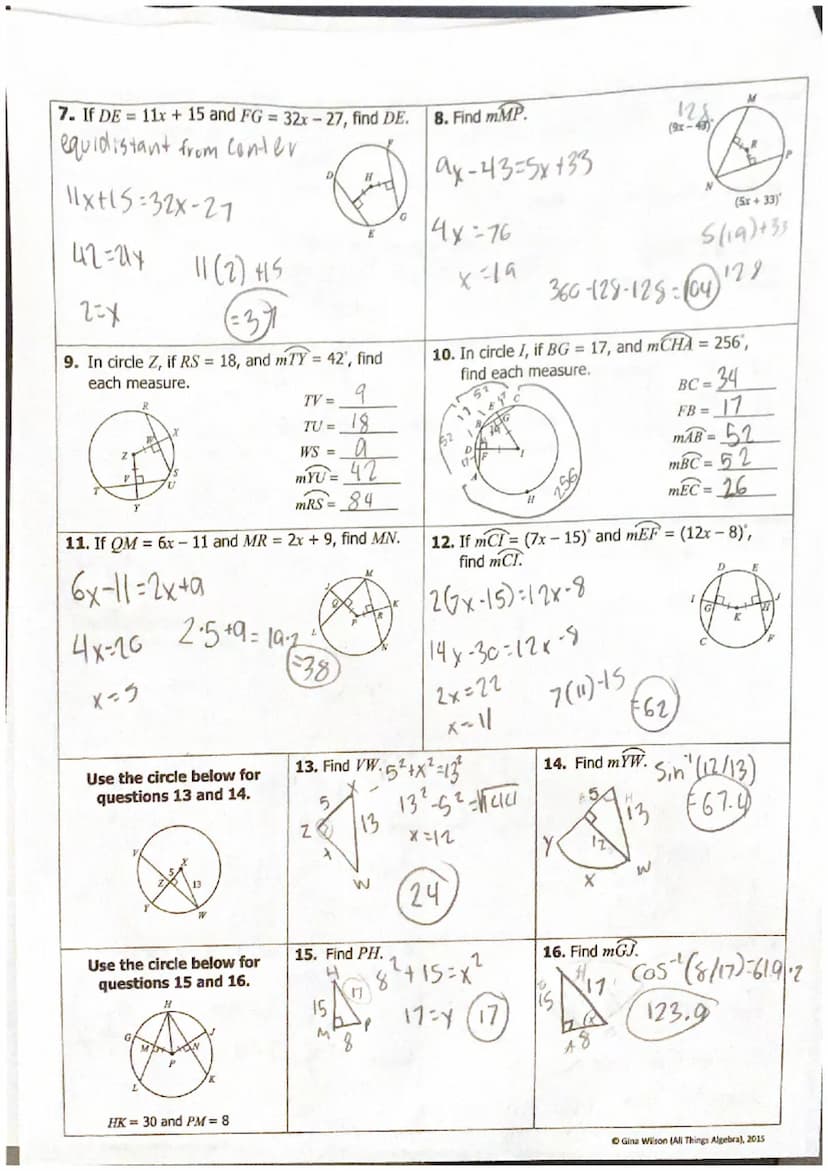 7. If DE = 11x + 15 and FG = 32x – 27, find DE.
equidistant from center
11x+15=32x-27
42=21x
11(2)+15
2=x
=37
D
F
H
G
E
8. Find mMP.
128
(9x – 43)°
M
R
P
N
(5x + 33)°
9x-43=5x+33
4x=76
x=19
5(19)+33
128
360-128-128=104
9. In circle Z, if RS = 18, and mTY = 42°, find
each measure.
TV = 9
TU = 18
WS = 9
mYU = 42
mRS = 84
R
W
X
Z
V
S
U
T
Y
10. In circle I, if BG = 17, and mCHA = 256°,
find each measure.
BC = 34
FB = 17
mAB = 52
mBC = 52
mEC = 26
52
17
52
E
C
B
G
D
F
I
17
A
H
256
11. If QM = 6x – 11 and MR = 2x + 9, find MN.
6x-11=2x+9
4x=20
2·5+9=19·2
=38
x=5
J
M
Q
K
P
R
L
N
12. If mCI = (7x – 15)° and mEF = (12x – 8)°,
find mCI.
2(7x-15)=12x-8
14x-30=12x-8
2x=22
x=11
7(11)-15
=62
D
E
I
G
H
J
K
C
F
Use the circle below for
questions 13 and 14.
V
X
5
Z
13
Y
W
13. Find VW.
5²+x²=13²
13²-5²=√144
x=12
24
5
X
Z
13
x
W
14. Find mYW.
Sin⁻¹(12/13)
=67.4
5
13
12
Y
X
W
Use the circle below for
questions 15 and 16.
H
G
J
M
N
P
L
K
HK = 30 and PM = 8
15. Find PH.
8²+15=x²
17=x
17
H
15
17
M
P
8
16. Find mGJ.
cos⁻¹(8/17)=61.9·2
123.9
H
15
17
8
© Gina Wilson (All Things Algebra), 2015